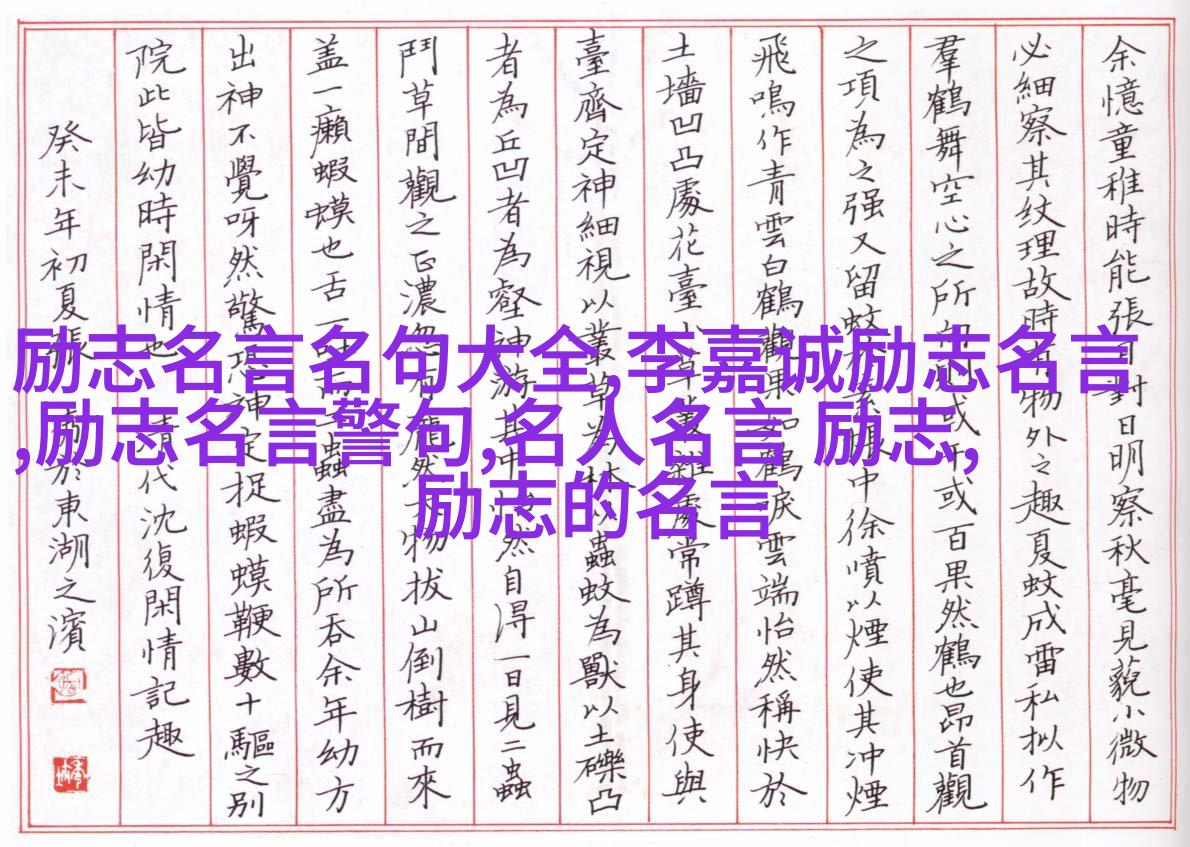 余憶童稚時能張目對日明察秋毫見藐小微物
必細察其纹理故時有物外之趣夏蚊成雷私拟作
羣鶴舞空心之所向則或千或百果然鶴也昂首觀
之項為之强又留蚊於素帳中徐噴以煙使其冲煙
飛鳴作青雲白鶴觀果如鶴唳雲端怡然稱快於
土墻凹凸處花臺小草叢雜處常蹲其身使與
臺齊定神細視以叢草為林以蟲蚊為獸以土礫凸
者為丘凹者為壑神游其中怡然自得一日見二蟲
鬥草間觀之正濃忽有龐然大物拔山倒樹而來
盖一癞蝦蟆也舌一吐而二蟲盡為所吞余年幼方
出神不覺呀然驚恐神定捉蝦蟆鞭數十驅之别
院此皆幼時閑情也 清代沈復閑情記趣
癸未年初夏張於東湖之濱
励志名言名句大全,李嘉诚励志名言
,励志名言警句,名人名言 励志,
励志的名言